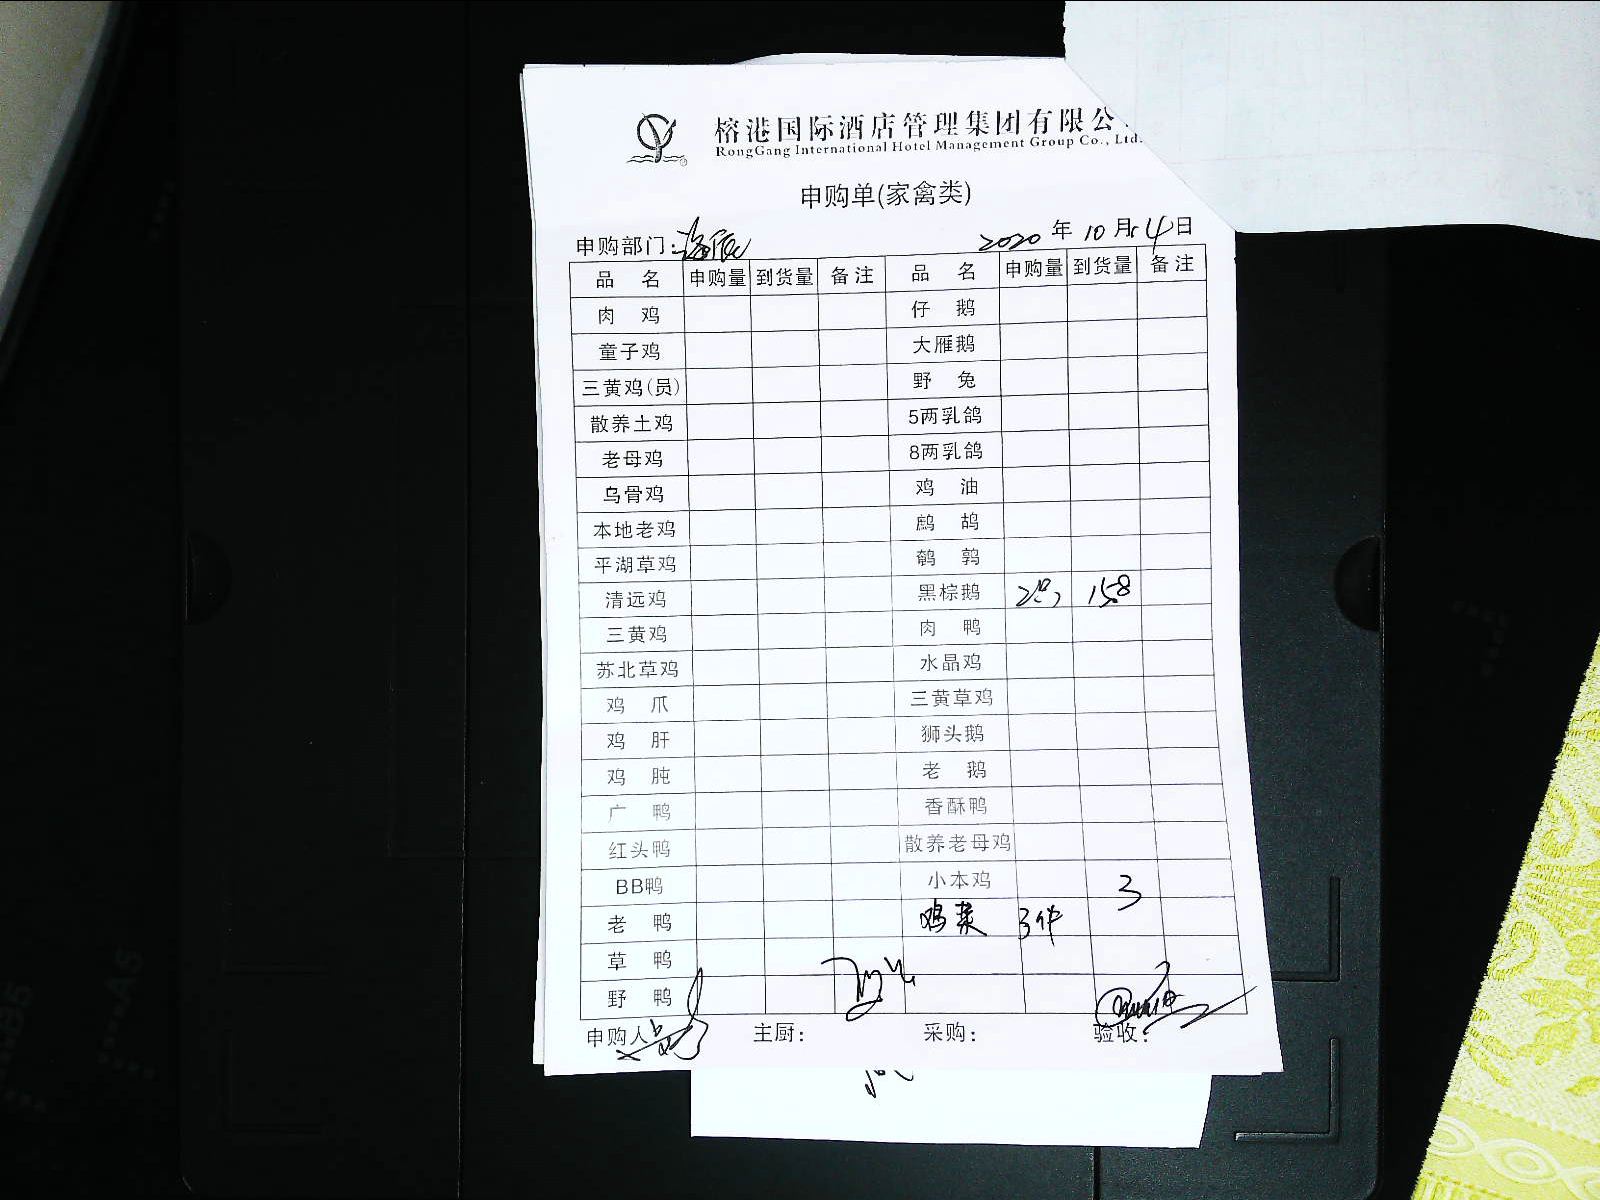 榕港国际酒店管理集团有限公
RongGang International Hotel Management Group Co., Ltd.
申购单(家禽类)
申购部门: 2020 年 10 月 4 日
品 名 申购量 到货量 备注 品 名 申购量 到货量 备注
肉 鸡 仔 鹅
童子鸡 大雁鹅
三黄鸡(员) 野 兔
散养土鸡 5两乳鸽
老母鸡 8两乳鸽
乌骨鸡 鸡 油
本地老鸡 鹧 鸪
平湖草鸡 鹌 鹑
清远鸡 黑棕鹅 158
三黄鸡 肉 鸭
苏北草鸡 水晶鸡
鸡 爪 三黄草鸡
鸡 肝 狮头鹅
鸡 肫 老 鹅
广 鸭 香酥鸭
红头鸭 散养老母鸡
BB鸭 小本鸡 3
老 鸭 鸡 3件
草 鸭
野 鸭
申购人 主厨: 采购: 验收: